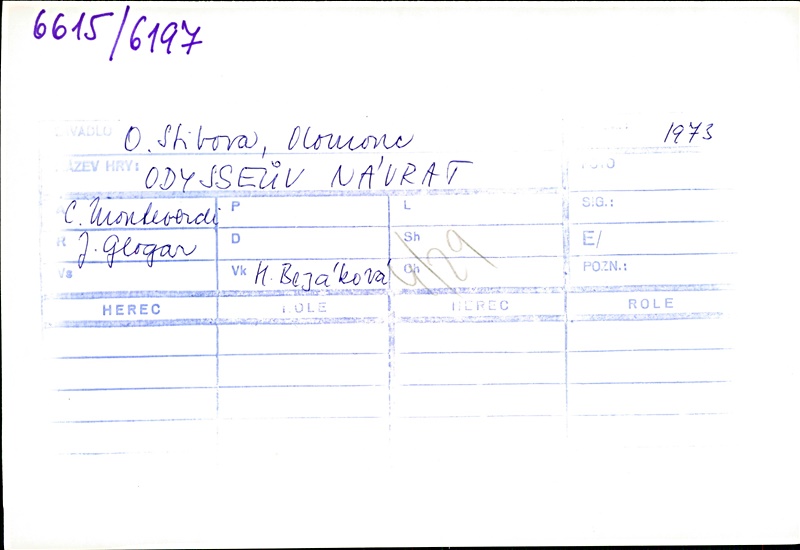 6615/6197
DIVADLO O. Stibora, Olomouc 1973
NÁZEV HRY: ODYSSEŮV NÁVRAT FOTO
C. Monteverdi P L SIG.:
R J. Glogar D Sh E/
Vs Vk H. Bezáková Ch 4/29 POZN.:
HEREC ROLE HEREC ROLE